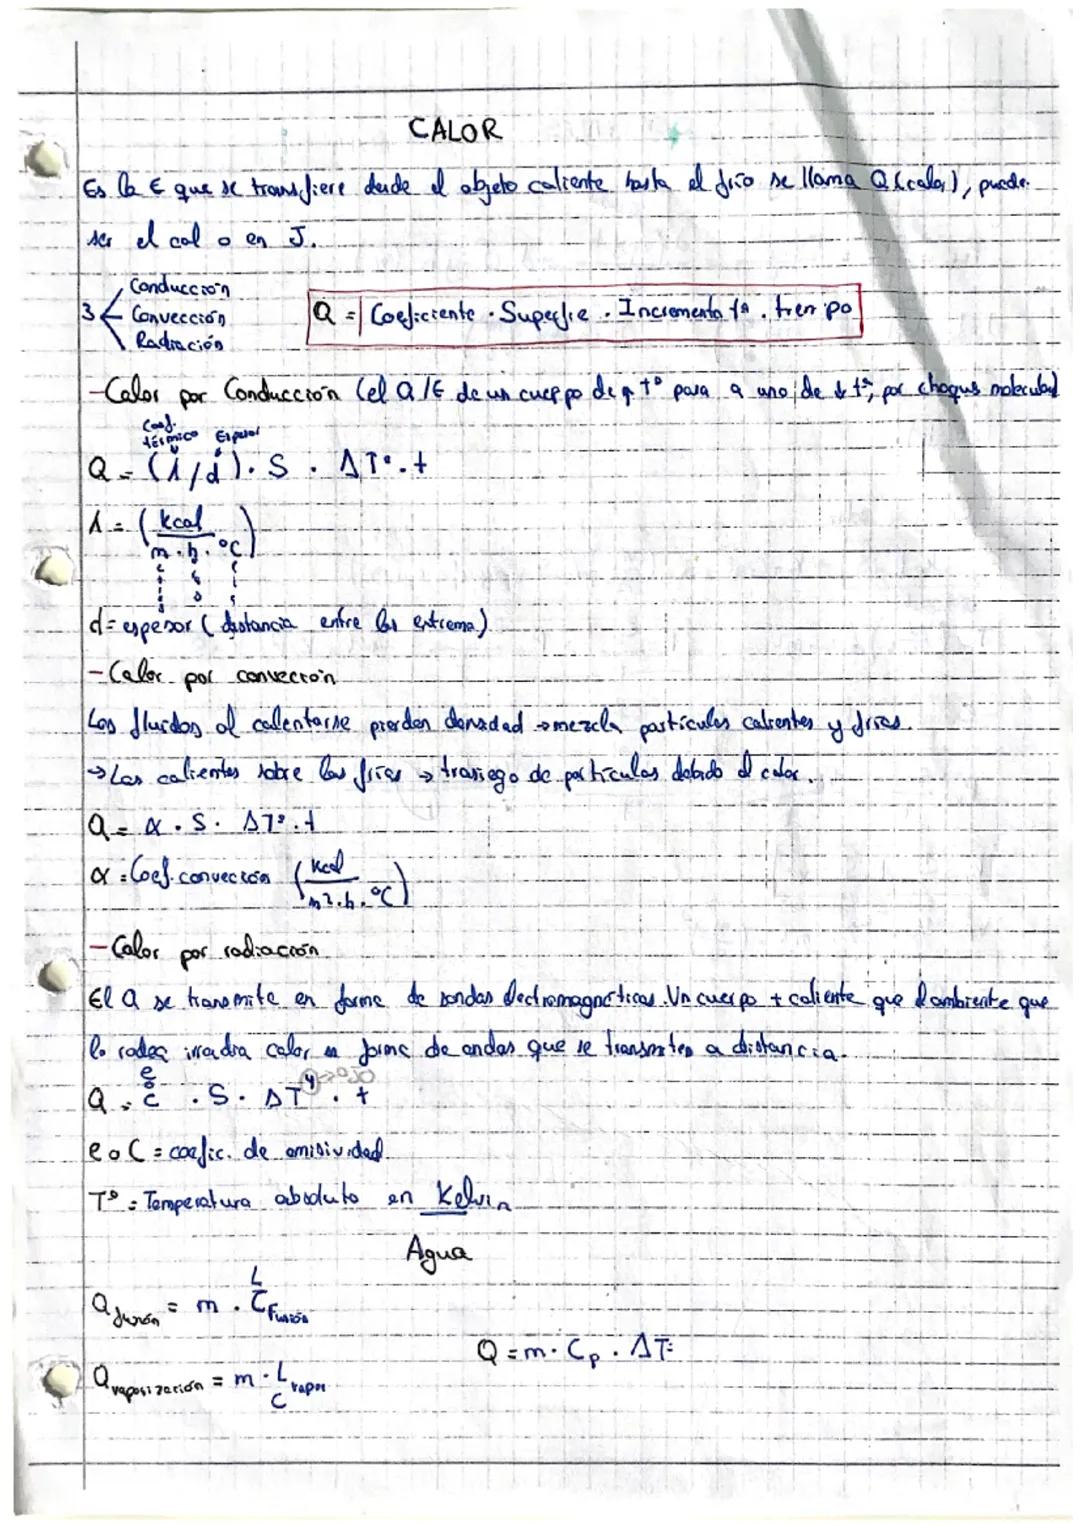 CALOR
Es la E que se transfiere desde el objeto caliente hasta el frío se llama Q (calor), puede
ser el cal o en J.
3 Conducción
Convección
Radiación
Q = Coeficiente · Superfie · Incremento tª · tiempo
- Calor por Conducción (el Q/E de un cuerpo de ↑ tº pasa a uno de ↓ tº, por choques molecular)
Coef. térmico Espesor
Q = (λ/d) · S · ΔTº · t
λ = (kcal / m · h · ºC)
d = espesor (distancia entre los extremos)
- Calor por convección
Los fluidos al calentarse pierden densidad → mezcla partículas calientes y frías.
→ Las calientes sobre las frías → trasiego de partículas debido al calor.
Q = α · S · ΔTº · t
α = Coef. convección (kcal / m² · h · ºC)
- Calor por radiación
El Q se transmite en forma de ondas electromagnéticas. Un cuerpo + caliente que el ambiente que
lo rodea irradia calor en forma de ondas que se transmiten a distancia.
Q = e o c · S · ΔT⁴ · t → OJO
e o C = coefic. de emisividad
Tº = Temperatura absoluta en Kelvin
Agua
Q fusión = m · L/C Fusión
Q = m · Cp · ΔT
Q vaporización = m · L/C vapor